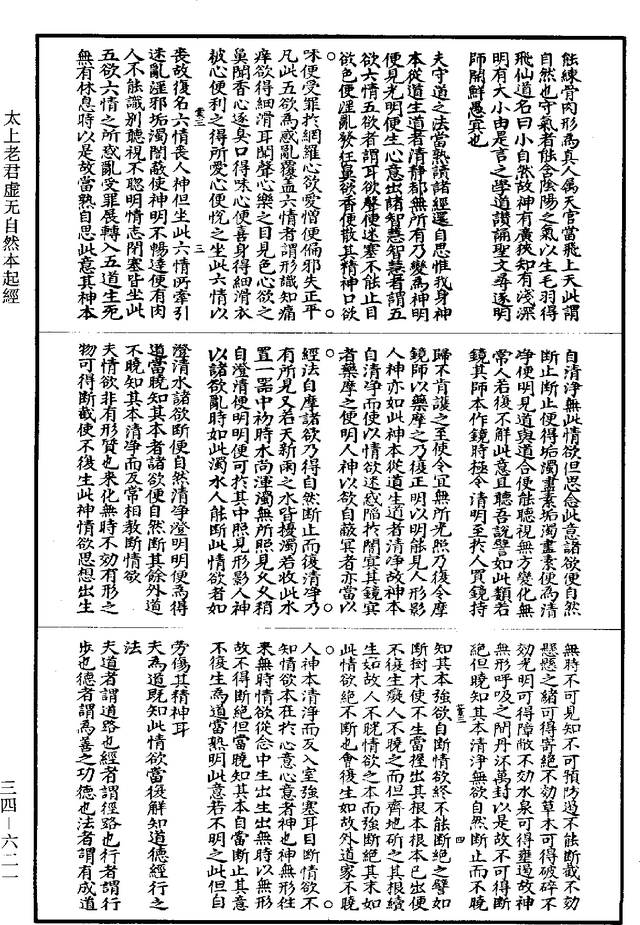 太上老君虛无自然本起經
能練骨肉形為真人屬天官當飛上天此謂
自然也守氣者能含陰陽之氣以生毛羽得
飛仙道名曰小自然故神有廣狹知有淺深
明有大小由是言之學道讚誦聖文尋逐明
師開解愚冥也
夫守道之法當熟讀諸經還自思惟我身神
本從道生道者清靜都無所有乃變為神明
便見光明便生心意出諸智慧智慧者謂五
欲六情五欲者謂耳欲聲便迷塞不能止目
欲色便淫亂發狂鼻欲香便散其精神口欲
味便受罪於網羅心欲愛憎便偏邪失正平
凡此五欲為惑亂覆蓋六情者謂形識知痛
痒欲得細滑耳聞聲心樂之目見色心欲之
鼻聞香心逐臭口得味心便喜身得細滑衣
被心便利之得所愛心便悅之坐此六情以
業三
三
喪故復名六情喪人神但坐此六情所牽引
迷亂淫邪垢濁闇蔽使神明不暢達便有肉
人不能識別聽視不聰明情志閉塞皆坐此
五欲六情之所惑亂受罪展轉入五道生死
無有休息時以是故當熟自思此意其神本
自清淨無此情欲但思念此意諸欲便自然
斷止斷止便得垢濁盡索垢濁盡索便為清
淨便明見道與道合便能聽視無方變化無
常人若復不解此意且聽吾說譬如此類若
鏡其師本作鏡時極令清明至於人買鏡持
歸不肯護之至使令冥無所光照乃復令摩
鏡師以藥摩之乃復正明以明能見人形影
人神亦如此神本從道生道者清淨故神本
自清淨而使以情欲迷惑陷於闇冥其鏡冥
者藥摩之便明人神以欲自蔽冥者亦當以
經法自摩諸欲乃得自然斷止而復清淨乃
有所見又若天新雨之水皆擾濁若收此水
置一器中初時水尚渾濁無所照見久久稍
自澄清便明明便可於其中照見形影人神
以諸欲亂時如此濁水人能斷此情欲者如
澄清水諸欲斷便自然清淨澄明明便為得
道當曉知其本者諸欲便自然斷其餘外道
不曉知其本清淨而反常相教斷情欲
夫情欲非有形質也來化無時不効有形之
物可得斷截使不復生此神情欲思想出生
無時不可見知不可預防遏不能斷截不効
懸懸之緒可得寄絕不効草木可得破碎不
効光明可得障蔽不効水泉可得壅遏故神
無形呼吸之間丹沐萬封以是故不可得斷
絕但曉知其本清淨無欲自然斷止而不曉
業三
四
知其本強欲自斷情欲終不能斷絕之譬如
斷樹木使不生當捏出其根本根本已出便
不復生癡人不曉之而但齊地斫之其根續
生如故人不曉情欲之本而強斷絕其末如
此情欲絕不斷也會復生如故外道家不曉
人神本清淨而反入室強塞耳目斷情欲不
知情欲本在於心意心意者神也神無形往
來無時情欲從念中生出生出無時以無形
故不得斷絕但當曉知其本自當斷止其意
不復生為道當熟明此意若不明之此但自
勞傷其精神耳
夫為道既知此情欲當復解知道德經行之
法
夫道者謂道路也經者謂徑路也行者謂行
步也德者謂為善之功德也法者謂有成道
三四—六二一